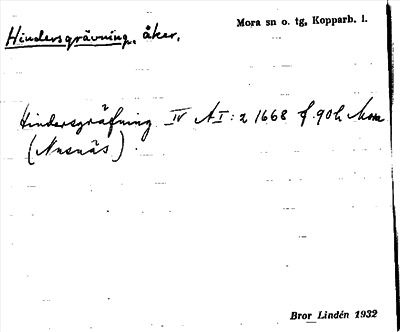 Hindersgrävning, åker.
Mora sn o. tg, Kopparb. l.
Hindersgräfning IV AI:2 1668 f. 90 h Mora
(Nusnäs).
Bror Lindén 1932